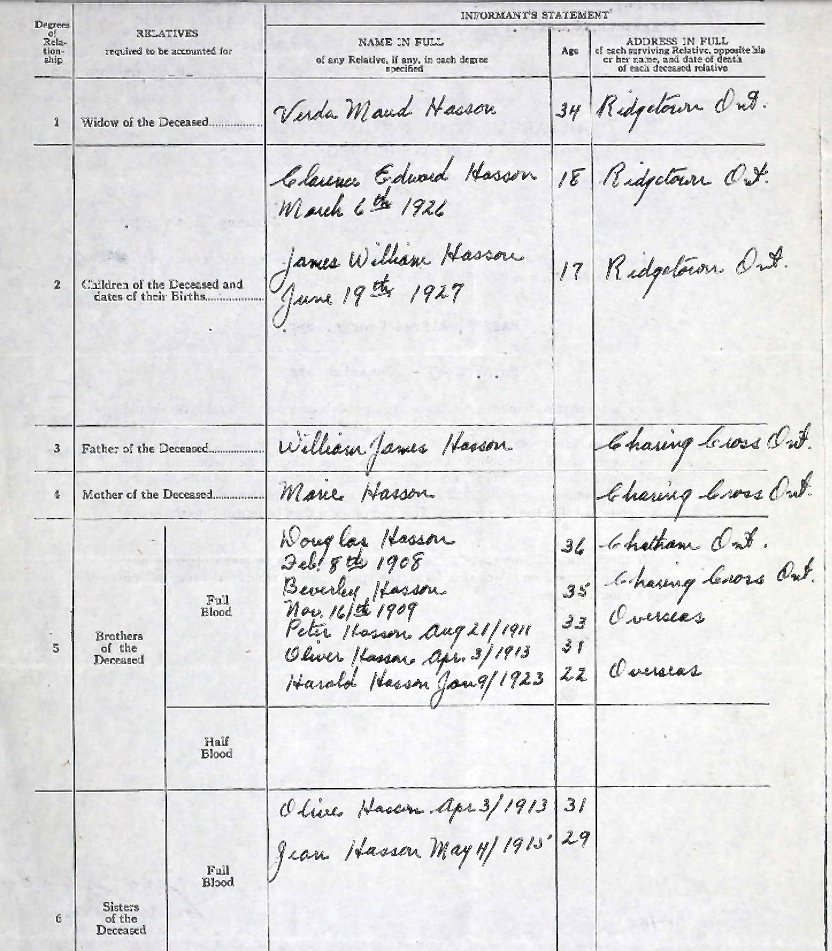 INFORMANT'S STATEMENT
Degrees of Rela-tion-ship
RELATIVES
required to be accounted for
NAME IN FULL
of any Relative, if any, in each degree specified
Age
ADDRESS IN FULL
of each surviving Relative, opposite his or her name, and date of death of each deceased relative
1 Widow of the Deceased.............. Verda Maud Hasson 34 Ridgetown Ont.
Clarence Edward Hasson 18 Ridgetown Ont.
March 6th 1926
James William Hasson 17 Ridgetown Ont.
2 Children of the Deceased and dates of their Births.............. June 19th 1927
3 Father of the Deceased.............. William James Hasson Charing Cross Ont.
4 Mother of the Deceased.............. Marie Hasson Charing Cross Ont.
5 Brothers of the Deceased
Full Blood
Douglas Hasson 36 Chatham Ont.
Feb. 8th 1908
Beverley Hasson 35 Charing Cross Ont.
Nov. 16/th 1909
Peter Hasson Aug 21/1911 33 Overseas
Oliver Hasson Apr. 3/1913 31
Harold Hasson Jan 9/1923 22 Overseas
Half Blood
6 Sisters of the Deceased
Full Blood
Olive Hasson Apr 3/1913 31
Jean Hasson May 4/1915 29